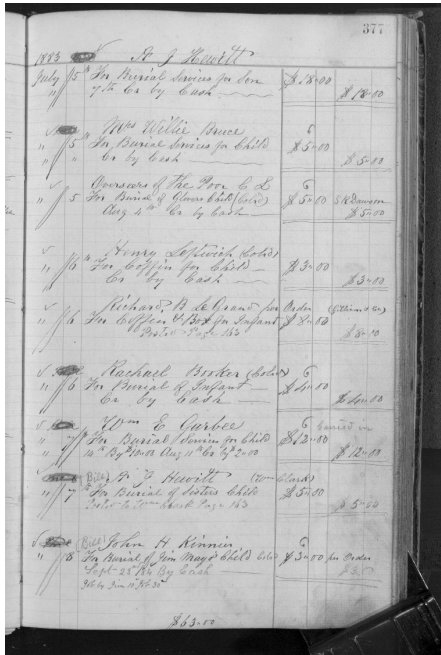 377
1883 A J Hewitt
July 5th For Burial Services for Son $18.00
" 7th Cr by Cash $18.00
Mrs Willie Bruce
" 5th For Burial Services for Child $5.00
" Cr by Cash $5.00
Overseers of The Poor C L
" 5 For Burial of Child (Cold) $5.00 Dawson
Aug 4th Cr by Cash $5.00
Henry Leftwich (Cold)
" 6th For Coffin for Child $3.00
Cr by Cash $3.00
Richard B Le Grand per Order
" 6 For Coffin & Box for Infant $8.00
Posted Page 163 $8.00
Rachael Booker (Cold)
" 6 For Burial of Infant $4.00
Cr by Cash $4.00
Wm E Gurbee
" 7 For Burial Services for Child $12.00
14th By $10.00 Aug 11th Cr by 2.00 $12.00
(Bill) A J Hewitt (Wm Clark)
" 7 For Burial of Sisters Child $5.00
Posted to Wm Clark Page 163 $5.00
(Bill) John H Kinnier
" 8 For Burial of Jim Mays Child Cold $3.00 per Order
Sept 22d 84 By Cash
$63.00